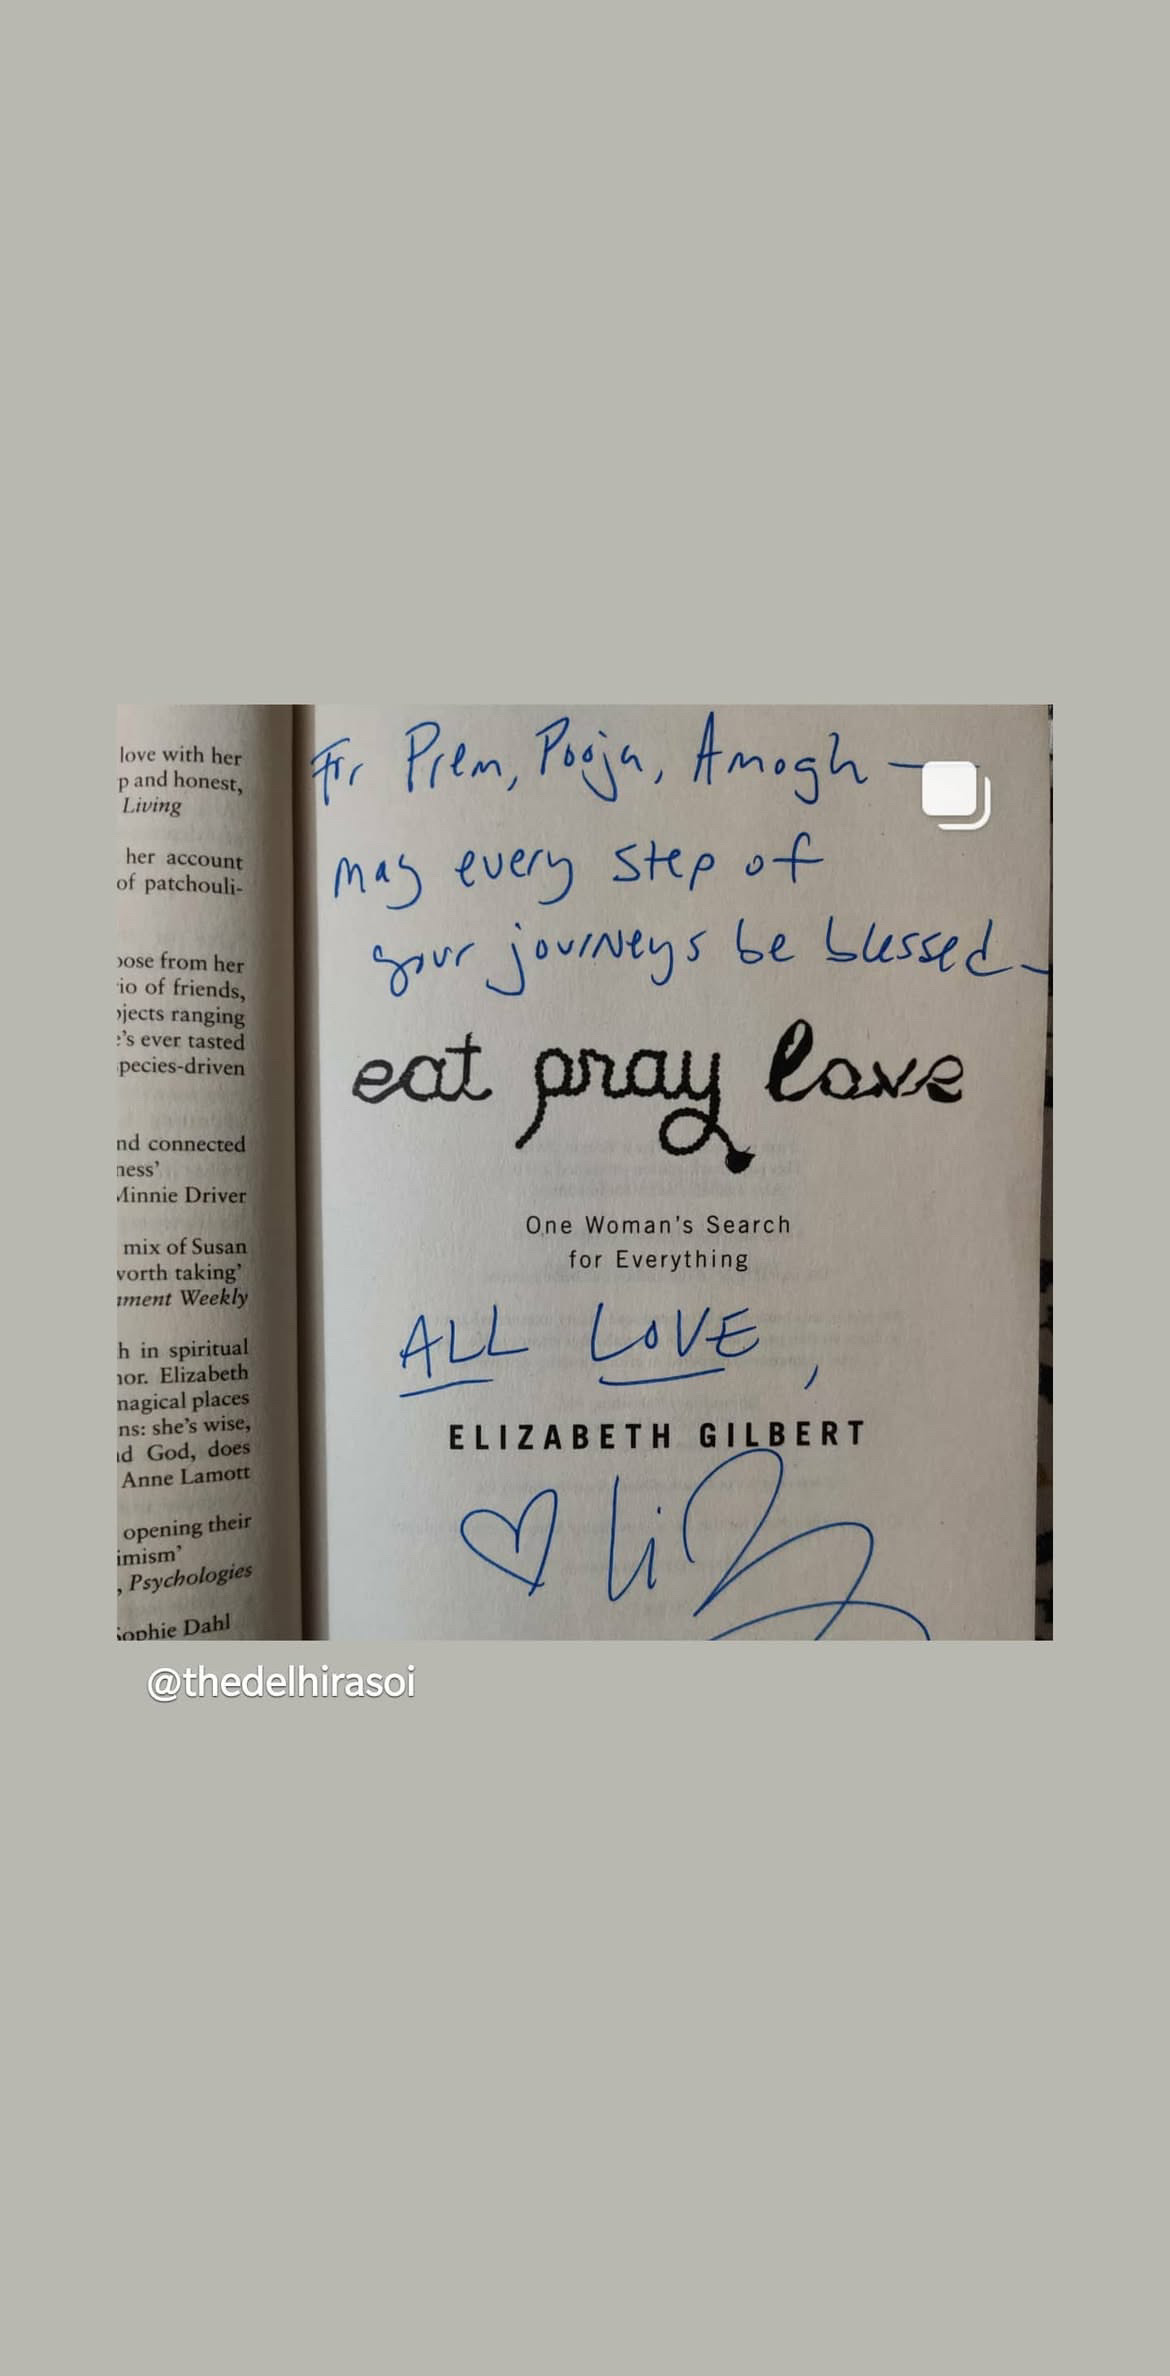 love with her
p and honest,
Living
her account
of patchouli-
pose from her
io of friends,
jects ranging
's ever tasted
pecies-driven
nd connected
ness'
Minnie Driver
mix of Susan
worth taking'
Weekly
h in spiritual
Elizabeth
magical places
ns: she's wise,
God, does
Anne Lamott
opening their
imism'
, Psychologies
Sophie Dahl
For Prem, Pooja, Amogh –
may every step of
your journeys be blessed –
eat pray love
One Woman's Search
for Everything
ALL LOVE,
ELIZABETH GILBERT
♡ Liz
@thedelhirasoi